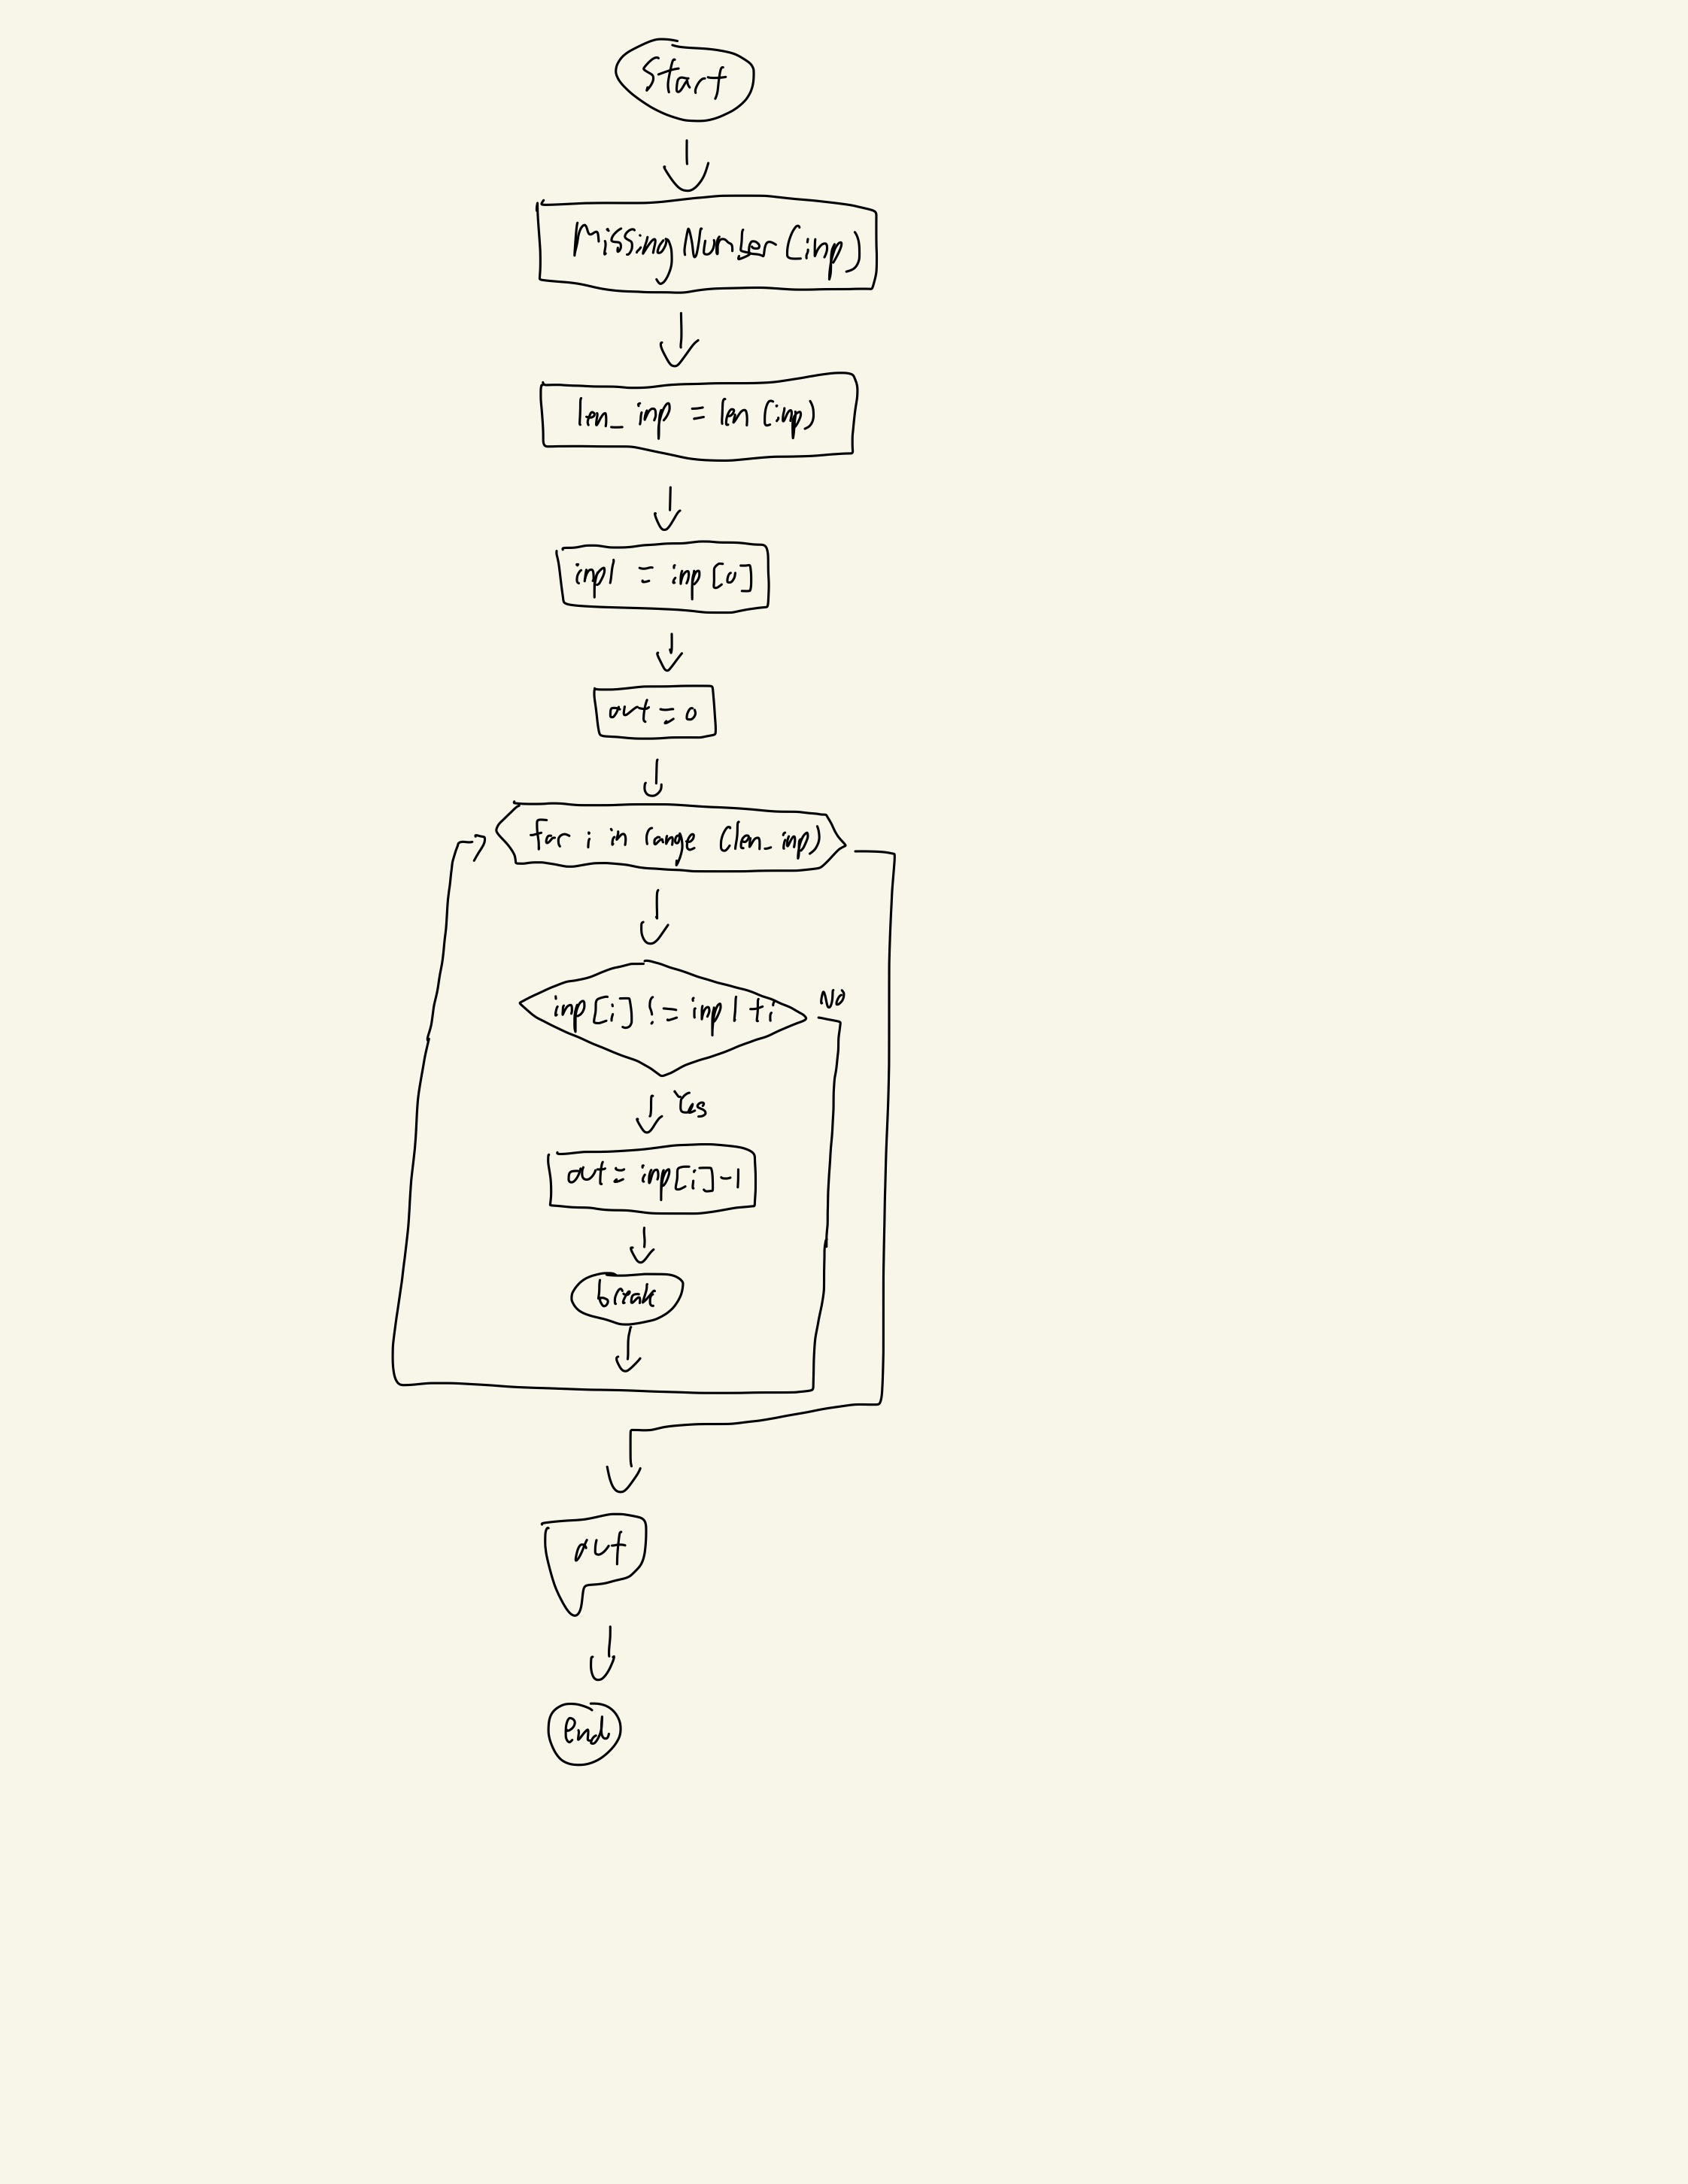 Start
MissingNumber(inp)
len_inp = len(inp)
inp1 = inp[0]
out = 0
for i in range (len_inp)
inp[i] != inp1+i
No
Yes
out = inp[i]-1
break
out
end